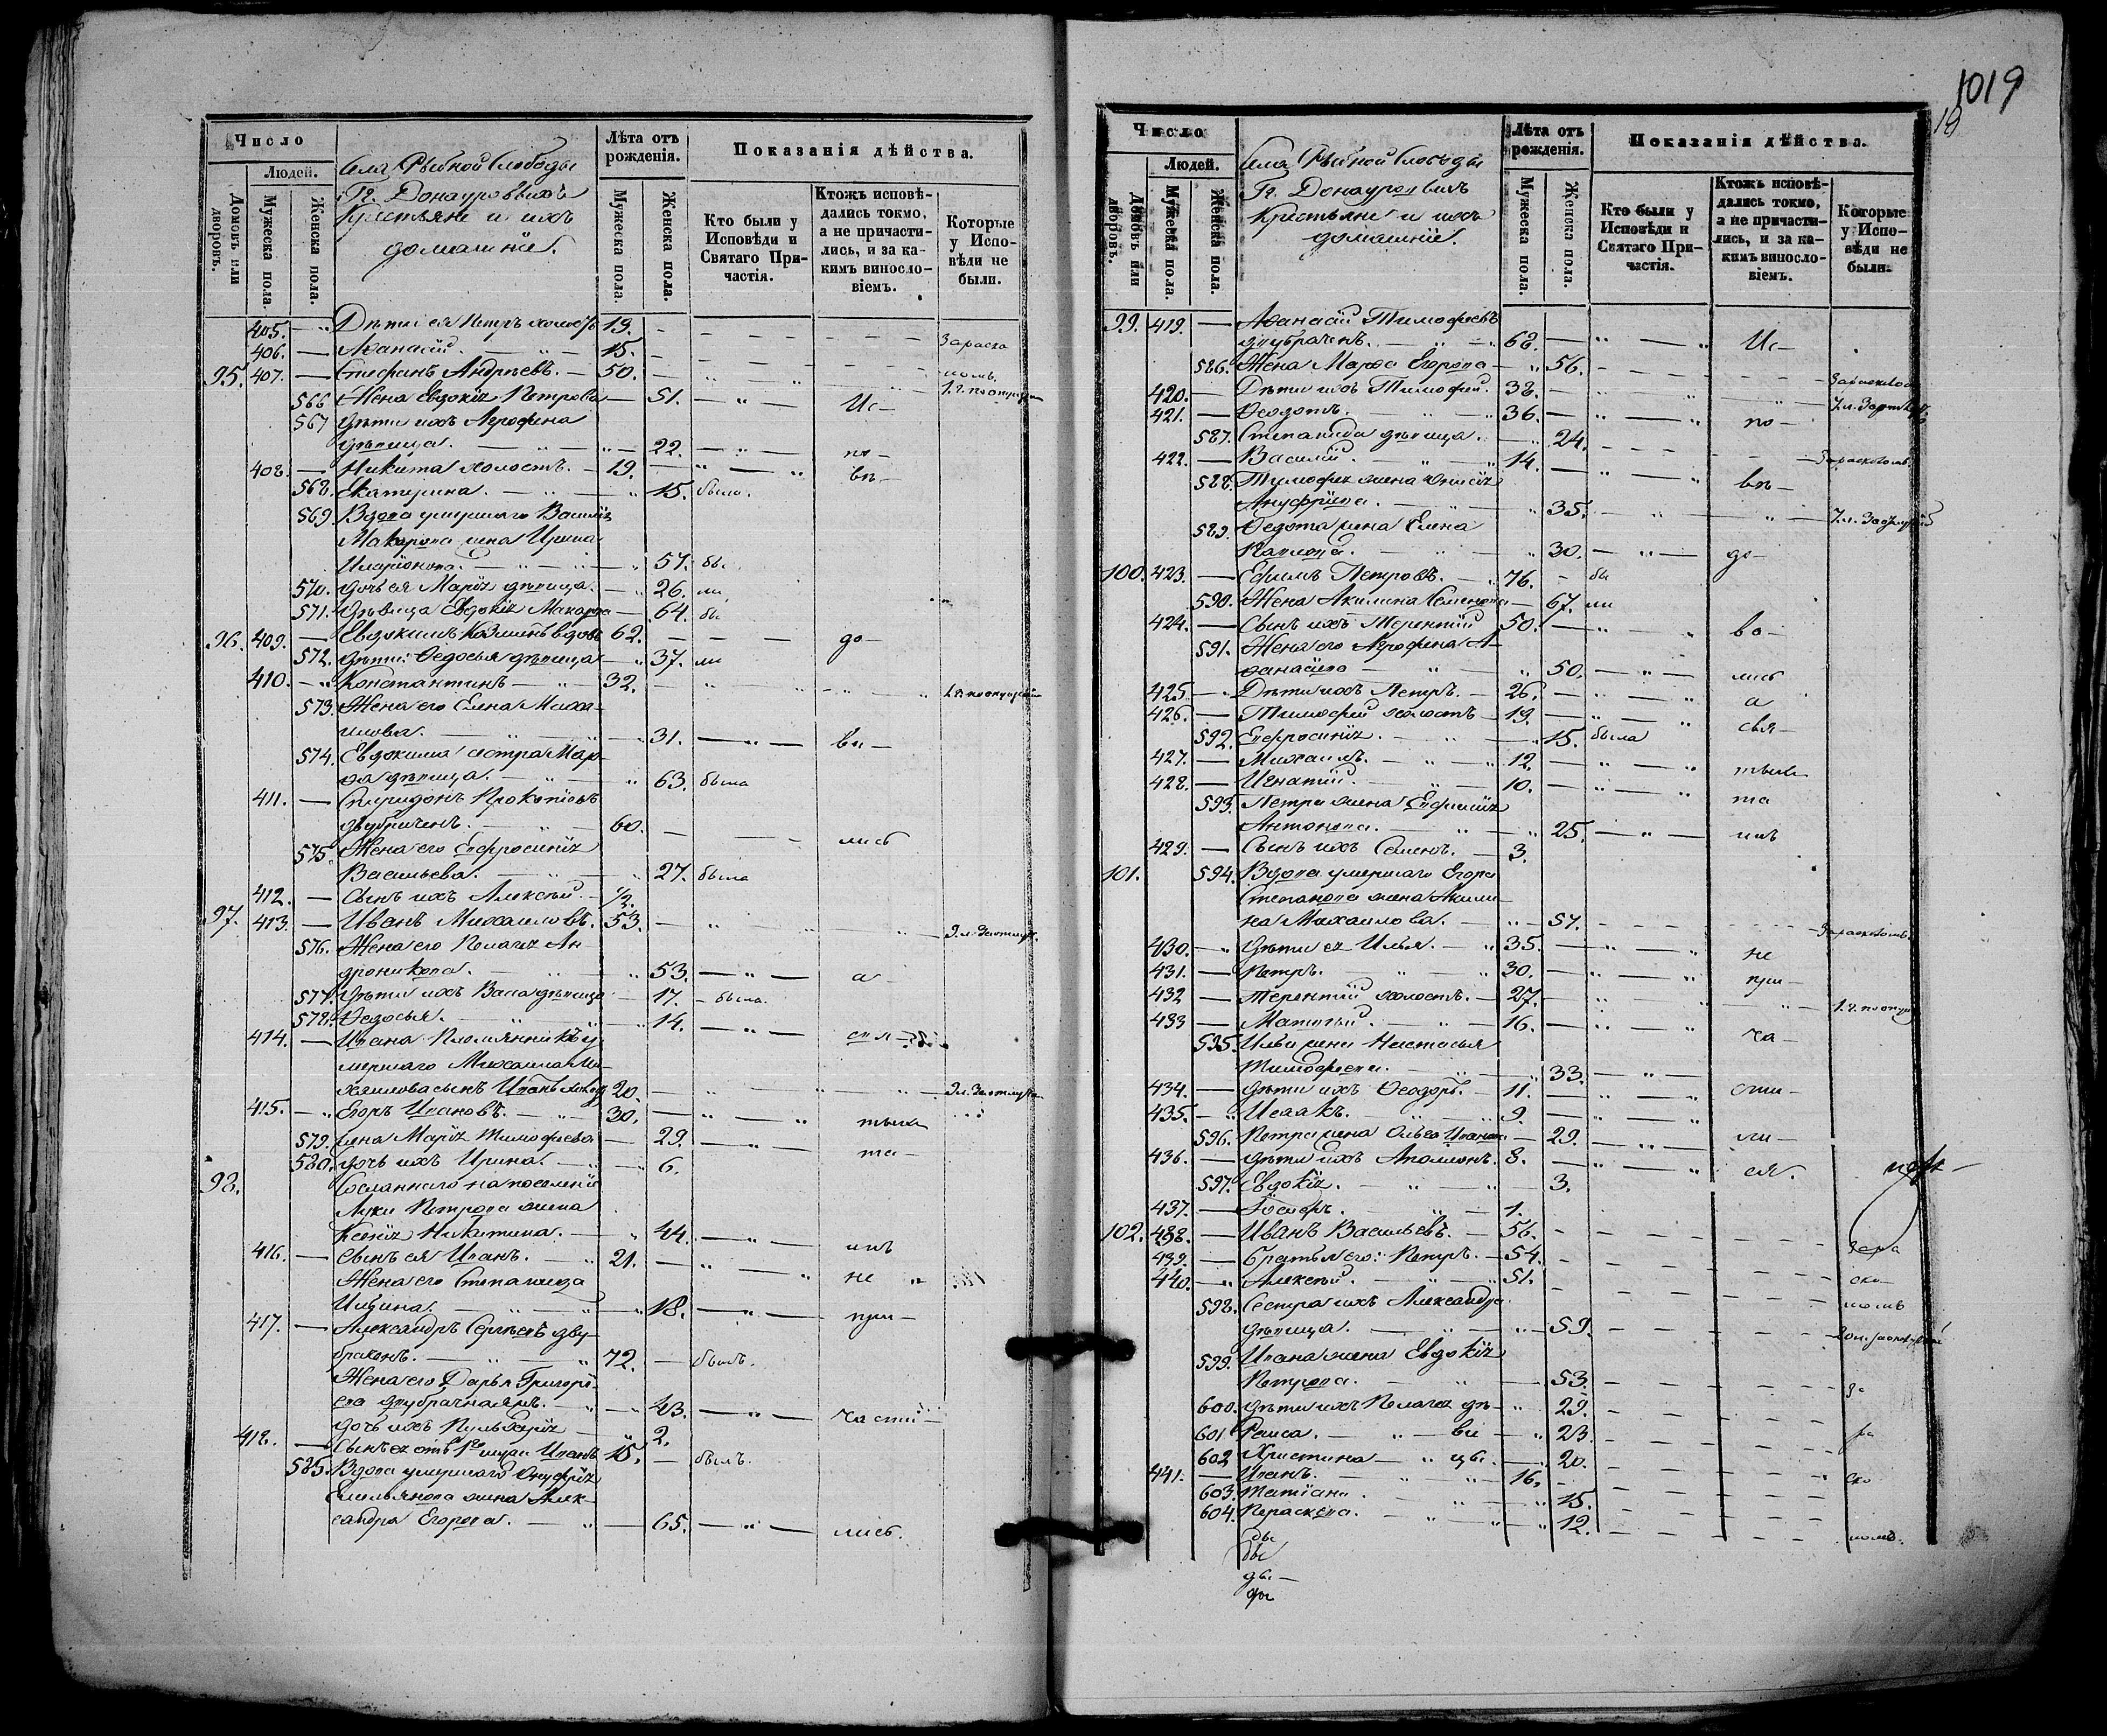 1019
19
Число
Села Рыбной Слободы
Лѣта отъ рожденія.
Показанія дѣйства.
Людей.
Гг. Донауровыхъ
Крестьяне и ихъ
домашніе.
Домовъ или дворовъ.
Мужеска пола.
Женска пола.
Мужеска пола.
Женска пола.
Кто были у Исповѣди и Святаго Причастія.
Ктожъ исповѣдались токмо, а не причастились, и за какимъ винословіемъ.
Которые у Исповѣди не были.
405. — Дѣти ея Петръ холостъ 19.
406. — Аѳанасій. 15.
95. 407. — Стефанъ Андреевъ. 50.
566 Жена Евдокія Петрова 51. Ис—
567 Дѣти ихъ Агрофена
дѣвица. 22. по—
408. — Никита холостъ. 19. вѣ—
568. Екатерина. 15. была.
569. Вдова умершаго Василія
Макарова жена Ирина
Иларіонова. 57. бы
570. дочь ея Марія дѣвица. 26. ли
571. Дѣвица Евдокія Макарова 64. бы
96. 409. — Евдокимъ Козминъ вдовъ 62. до—
572. Дѣти: Ѳедосья дѣвица 37. ли
410. — Константинъ 32.
573. Жена его Елена Михаи-
лова. 31. ва—
574. Евдокима сестра Мар-
ѳа дѣвица. 63. была
411. — Спиридонъ Прокопіевъ
двубраченъ. 60. лись
575. Жена его Евфросинія
Васильева. 27. была
412. — Сынъ ихъ Алексѣй. 1/2.
97. 413. — Иванъ Михаиловъ. 53.
576. Жена его Пелагія Ан-
дроникова. 53. а—
577. Дѣти ихъ Васа дѣвица 17. была.
578. Ѳедосья. 14.
414. — Ивана племянникъ у-
мершаго Михаила Ми-
хаилова сынъ Иванъ 20.
415. — Егоръ Ивановъ. 30. тыхъ
579. жена Марія Тимофеева 29. та—
580. дочь ихъ Ирина. 6.
98. Сосланнаго на поселеніе
Луки Петрова жена
Ксенія Никитина. 44. инъ
416. — сынъ ея Иванъ. 21. не
Жена его Степанида
Ильина. 18. при—
417. — Александръ Сергѣевъ дву-
браченъ. 72. былъ.
Жена его Дарья Григорь-
ева 43. части—
дочь ихъ Пульхерія 2.
418. — Сынъ ея отъ 1го мужа Иванъ 15. былъ.
585. Вдова умершаго Онуфрія
Емельянова жена Алек-
сандра Егорова. 65. лись.
Число
Села Рыбной Слободы
Лѣта отъ рожденія.
Показанія дѣйства.
Людей.
Гг. Донауровыхъ
Крестьяне и ихъ
домашніе.
Домовъ или дворовъ.
Мужеска пола.
Женска пола.
Мужеска пола.
Женска пола.
Кто были у Исповѣди и Святаго Причастія.
Ктожъ исповѣдались токмо, а не причастились, и за какимъ винословіемъ.
Которые у Исповѣди не были.
99. 419. — Аѳанасій Тимофеевъ
двубраченъ. 68. Ис—
586. Жена Марѳа Егорова 56.
420. — Дѣти ихъ Тимофей. 38.
421. — Ѳеодотъ. 36. по—
587. Степанида дѣвица. 24.
422. — Василій. 14. вѣ—
588. Тимофея жена Анисія
Ануфріева. 35.
589. Ѳедота жена Елена
Павлова. 30. до—
100. 423. — Ефимъ Петровъ. 76. бы
590. Жена Акилина Семенова 67. ли
424. — Сынъ ихъ Терентій 50. во—
591. Жена его Агрофена А-
ѳанасіева 50. лись
425. — Дѣти ихъ Петръ. 26. а
426. — Тимофей холостъ 19. свя—
592. Евфросинія. 15. была
427. — Михаилъ. 12. тыхъ
428. — Игнатій. 10. та
593. Петра жена Евфимія
Антонова. 25. инъ
429. — Сынъ ихъ Семенъ. 3.
101. 594. Вдова умершаго Егора
Степанова жена Акили-
на Михаилова. 57.
430. — Дѣти ея Илья. 35. не
431. — Петръ. 30. при—
432 — Терентій холостъ. 27.
433 — Матвѣй. 16. ча—
595. Ильи жена Настасья
Тимофеева. 33.
434. — Дѣти ихъ Ѳеодоръ. 11. сти—
435. — Исаакъ. 9.
596. Петра жена Ольга Иванова 29. ли—
436. — Дѣти ихъ Аполлонъ. 8. ся.
597. Евдокія. 3.
437. — Іосифъ. 1.
102. 438. — Иванъ Васильевъ. 56. За ра
439. — Братья его: Петръ. 54. ско—
440. — Алексѣй. 51. ломъ
598. Сестра ихъ Александра
дѣвица. 59.
599. Ивана жена Евдокія
Петрова. 53. за
600. Дѣти ихъ Пелагія дѣ— 29.
601 Раиса. — ви — 23. ра
602 Христина — цы. 20.
441. — Иванъ. 16. ско
603. Татіана. 15.
604. Параскева. 12. ломъ.